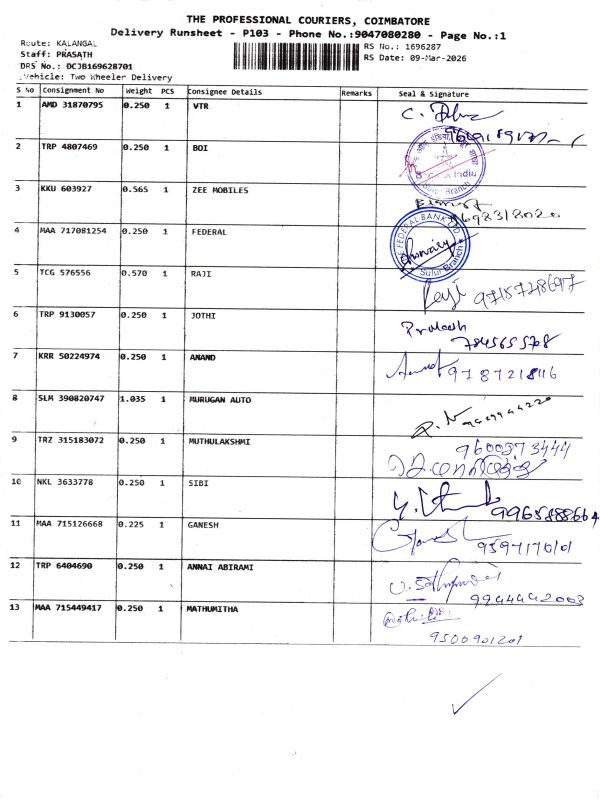 THE PROFESSIONAL COURIERS, COIMBATORE
Delivery Runsheet - P103 - Phone No.:9047080280 - Page No.:1
Route: KALANGAL
Staff: PRASATH
DRS No.: DCJB169628701
Vehicle: Two Wheeler Delivery
RS No.: 1696287
RS Date: 09-Mar-2026
S No Consignment No Weight PCS Consignee Details Remarks Seal & Signature
1 AMD 31870795 0.250 1 VTR
2 TRP 4807469 0.250 1 BOI
Sulur Branch
3 KKU 603927 0.565 1 ZEE MOBILES
4 MAA 717081254 0.250 1 FEDERAL
THE FEDERAL BANK LTD.
Sulur Branch
5 TCG 576556 0.570 1 RAJI
Raji 9718728697
6 TRP 9130057 0.250 1 JOTHI
Prakash
7 KRR 50224974 0.250 1 ANAND
8 SLM 390820747 1.035 1 MURUGAN AUTO
9 TRZ 315183072 0.250 1 MUTHULAKSHMI
9600373444
10 NKL 3633778 0.250 1 SIBI
11 MAA 715126668 0.225 1 GANESH
9597170101
12 TRP 6404690 0.250 1 ANNAI ABIRAMI
9244442003
13 MAA 715449417 0.250 1 MATHUMITHA
9500901201